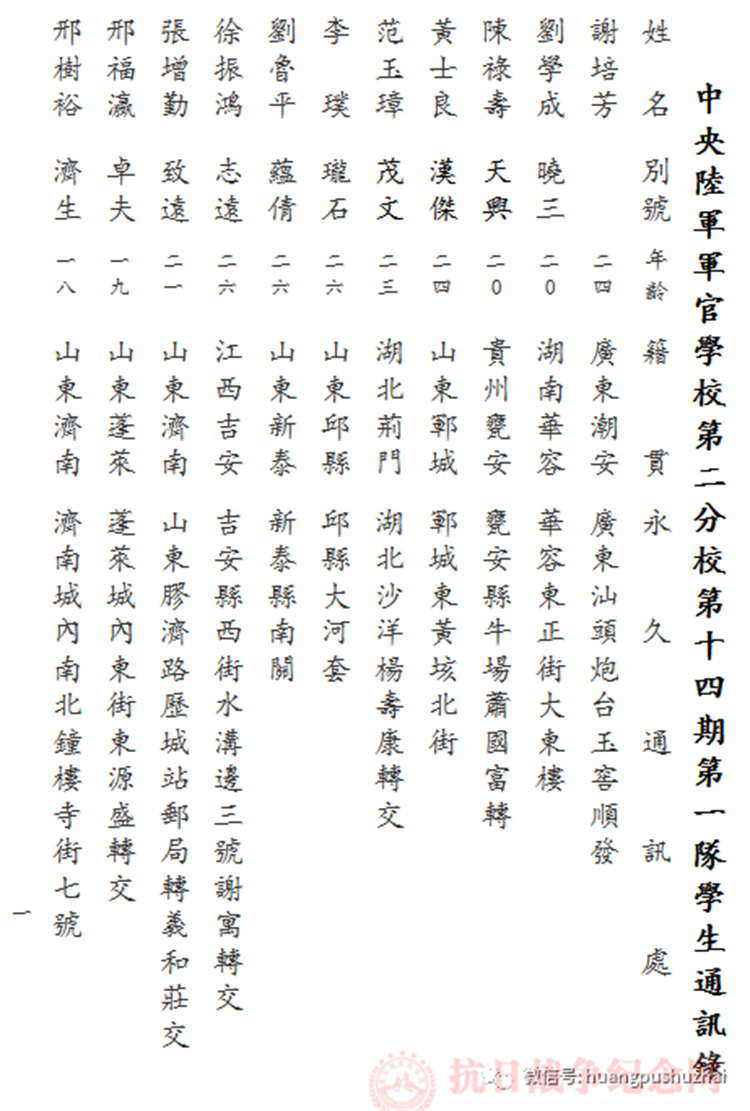 中央陸軍軍官學校第二分校第十四期第一隊學生通訊錄
姓名 別號 年齡 籍貫 永久通訊處
謝培芳 二四 廣東潮安 廣東汕頭炮台玉窖順發
劉學成 曉三 二0 湖南華容 華容東正街大東樓
陳祿壽 天興 二0 貴州甕安 甕安縣牛場蕭國富轉
黃士良 漢傑 二四 山東鄆城 鄆城東黃垓北街
范玉璋 茂文 二三 湖北荊門 湖北沙洋楊壽康轉交
李璞 瓏石 二六 山東邱縣 邱縣大河套
劉魯平 蘊倩 二六 山東新泰 新泰縣南關
徐振鴻 志遠 二六 江西吉安 吉安縣西街水溝邊三號謝寓轉交
張增勤 致遠 二一 山東濟南 山東膠濟路歷城站郵局轉義和莊交
邢福瀛 卓夫 一九 山東蓬萊 蓬萊城內東街東源盛轉交
邢樹裕 濟生 一八 山東濟南 濟南城內南北鐘樓寺街七號
一
抗日战争纪念网
微信号: huangpushuzhai